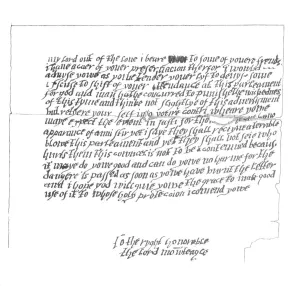 my lord out of the love i beare to some of youere frends
i have a caer of youer preservacion therfor i would
advyse yowe as yowe tender youer lyf to devys some
excuse to shift of youer attendance at this parleament
for god and man hathe concurred to punishe the wickednes
of this tyme and thinke not slightlye of this advertisment
but retyere youre self into youre contri wheare yowe
maye expect the event in safti for
apparance of anni stir yet i saye they shall receyve a terrible
blowe this parleament and yet they shall not seie who
hurts them this cowncel is not to be contemned because
it maye do yowe good and can do yowe no harme for the
dangere is passed as soon as yowe have burnt the letter
and i hope god will give yowe the grace to mak good
use of it to whose holy proteccion i comend yowe
To the right honorable
the lord mowteagle